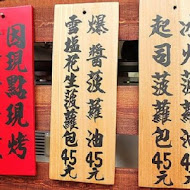 火菠蘿
起司菠蘿包45元
爆醬菠蘿油45元
雪塩花生菠蘿包45元
因現點現烤